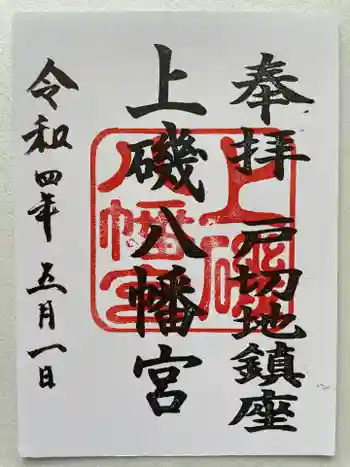 奉拝 戸切地鎮座
上磯八幡宮
令和四年 五月一日
上磯
八幡宮